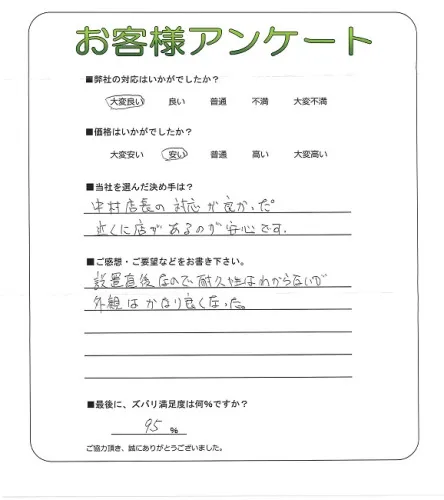 お客様アンケート
■弊社の対応はいかがでしたか？
大変良い 良い 普通 不満 大変不満
■価格はいかがでしたか？
大変安い 安い 普通 高い 大変高い
■当社を選んだ決め手は？
中村店長の対応が良かった。
近くに店があるのが安心です.
■ご感想・ご要望などをお書き下さい。
設置直後なので耐久性はわからないが
外観はかなり良くなった。
■最後に、ズバリ満足度は何％ですか？
95 ％
ご協力頂き、誠にありがとうございました。